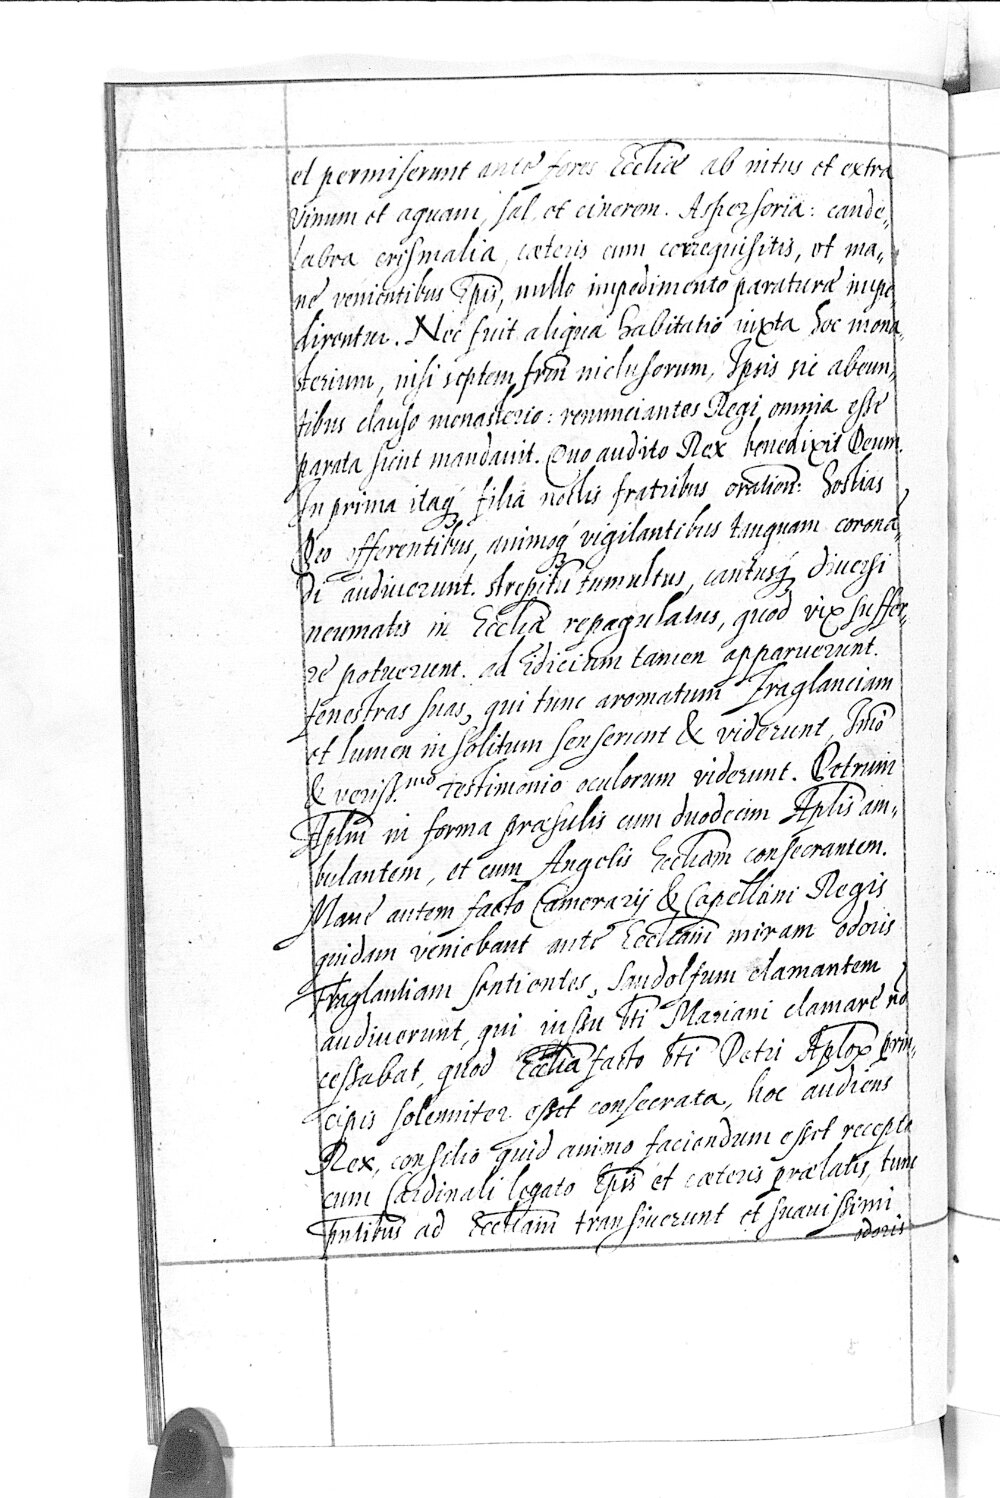 et permiserunt ante fores Eccliæ ab intus et extra
vinum et aquam, sal, et cinerem. Aspersoria: cande„
labra crismalia, cæteris cum correquisitis, et ma„
ne venientibus Epis, nullo impedimento paraturæ impe„
direntur. Nec fuit aliqua habitatio iuxta hoc mona„
sterium, nisi septem frm inclusorum, Ipsis sic abeun„
tibus clauso monasterio: renunciantes Regi omnia esse
parata sicut mandavit. Quo audito Rex benedixit Deum.
In prima itaq; filia noctis fratribus oration: hostias
Deo offerentibus, animoq; vigilantibus tanquam corona„
di audiuerunt. strepitu tumultus, cantusq; diuersi
neumatis in Ecclia repagulatus, quod vix suffer„
re potuerunt. ad Idicium tamen apparuerunt.
fenestras suas, qui tunc aromatum fraglanciam
et lumen insolitum senserunt & viderunt, Imo
& veriss.mo testimonio oculorum viderunt. Petrum
Aplm in forma præsulis cum duodecim Aplis am„
bulantem, et cum Angelis Eccliam consecrantem.
Mane autem facto Camerarij & Capellani Regis
quidam veniebant ante Eccliam miram odoris
fraglantiam sentientes, Sundolfum clamantem
audiuerunt, qui iussu bti Mariani clamare no
cessabat, quod Ecclia facto bti Petri Aplox prin„
cipis solenniter esset consecrata, hoc audiens
Rex, consilio quid animo faciendum esset recepto
cum Cardinali legato Epis et cæteris prælatis, tunc
pntibus ad Eccliam transiuerunt et suauissimi
odoris